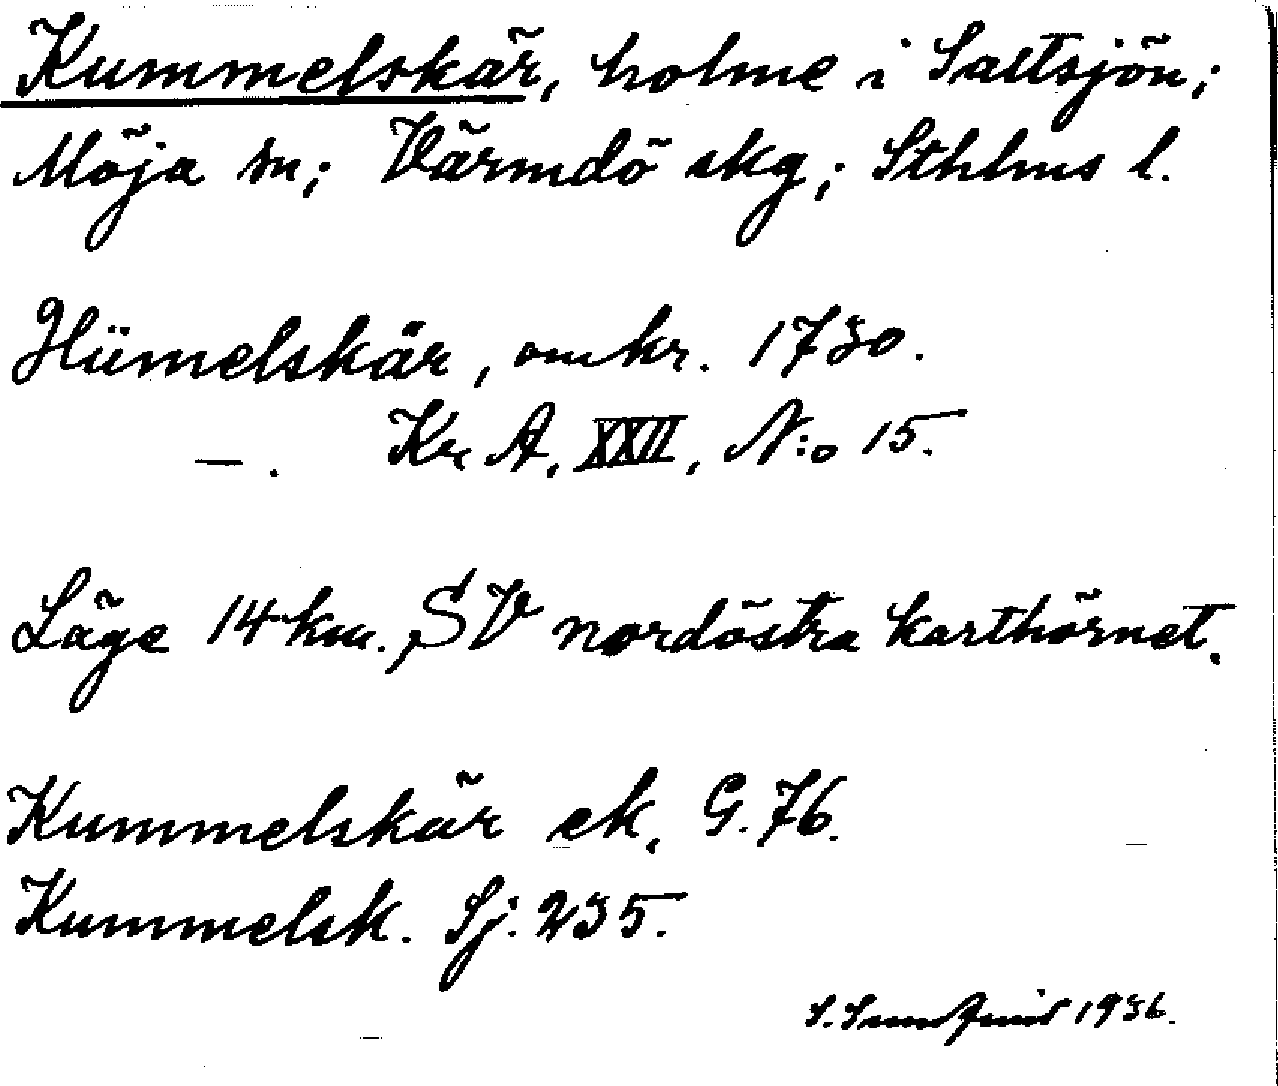 Kummelskär, holme i Saltsjön;
Möja sn; Värmdö skg; Sthlms l.
Hümelskär, omkr. 1730.
—. Kr. A. XXII, N:o 15.
Läge 14 km. SV nordöstra karthörnet.
Kummelskär ek. G. 76.
Kummelsk. Sj. 235.
1936.